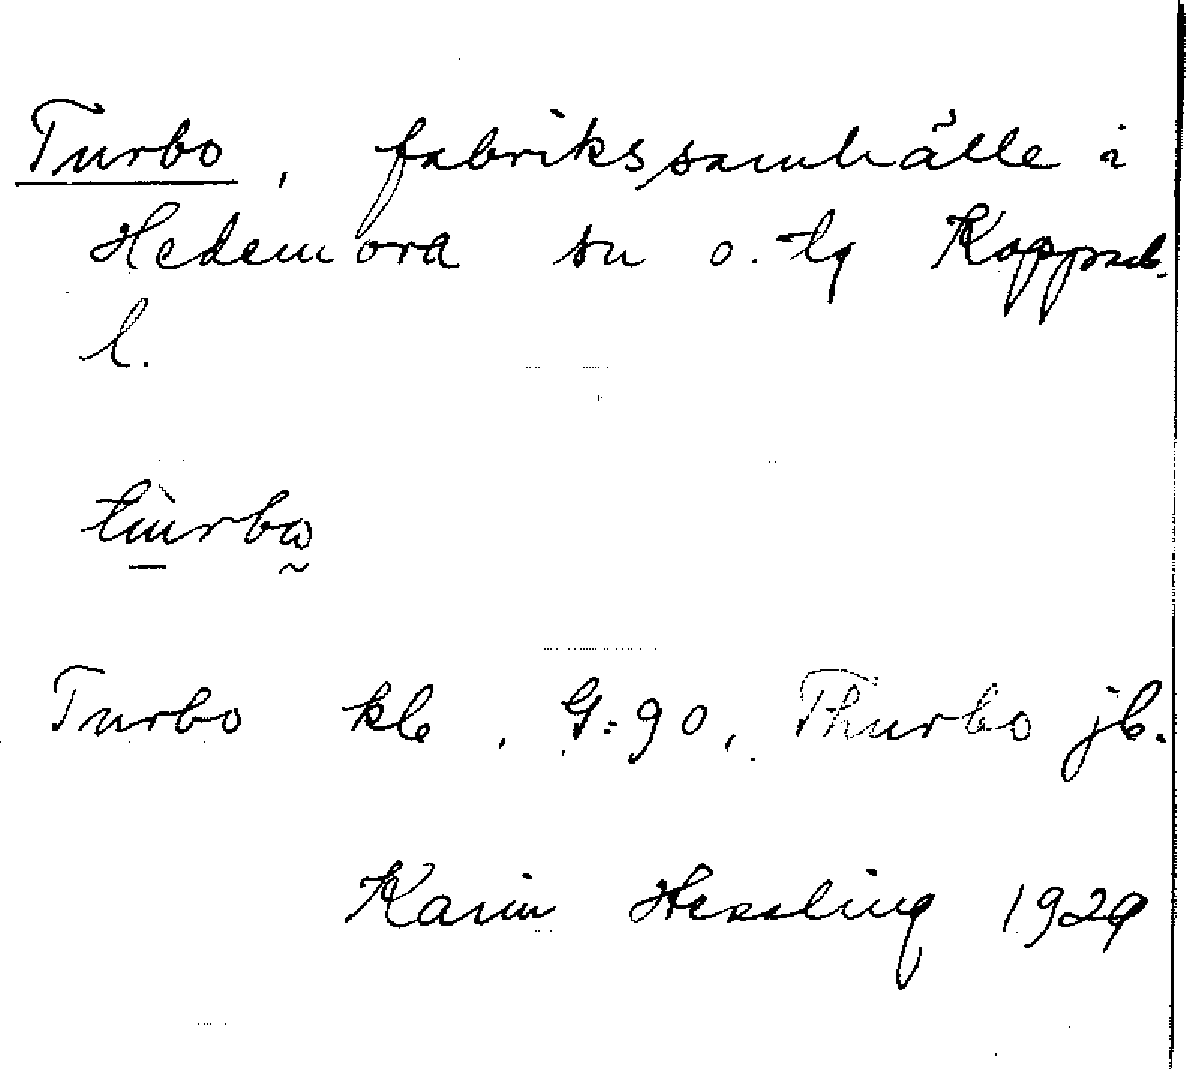 Turbo, fabrikssamhälle i
Hedemora sn o. tg Kopparb.
l.
tùrbω
Turbo kb, G:90, Thurbo jb.
Karin Hessling 1929